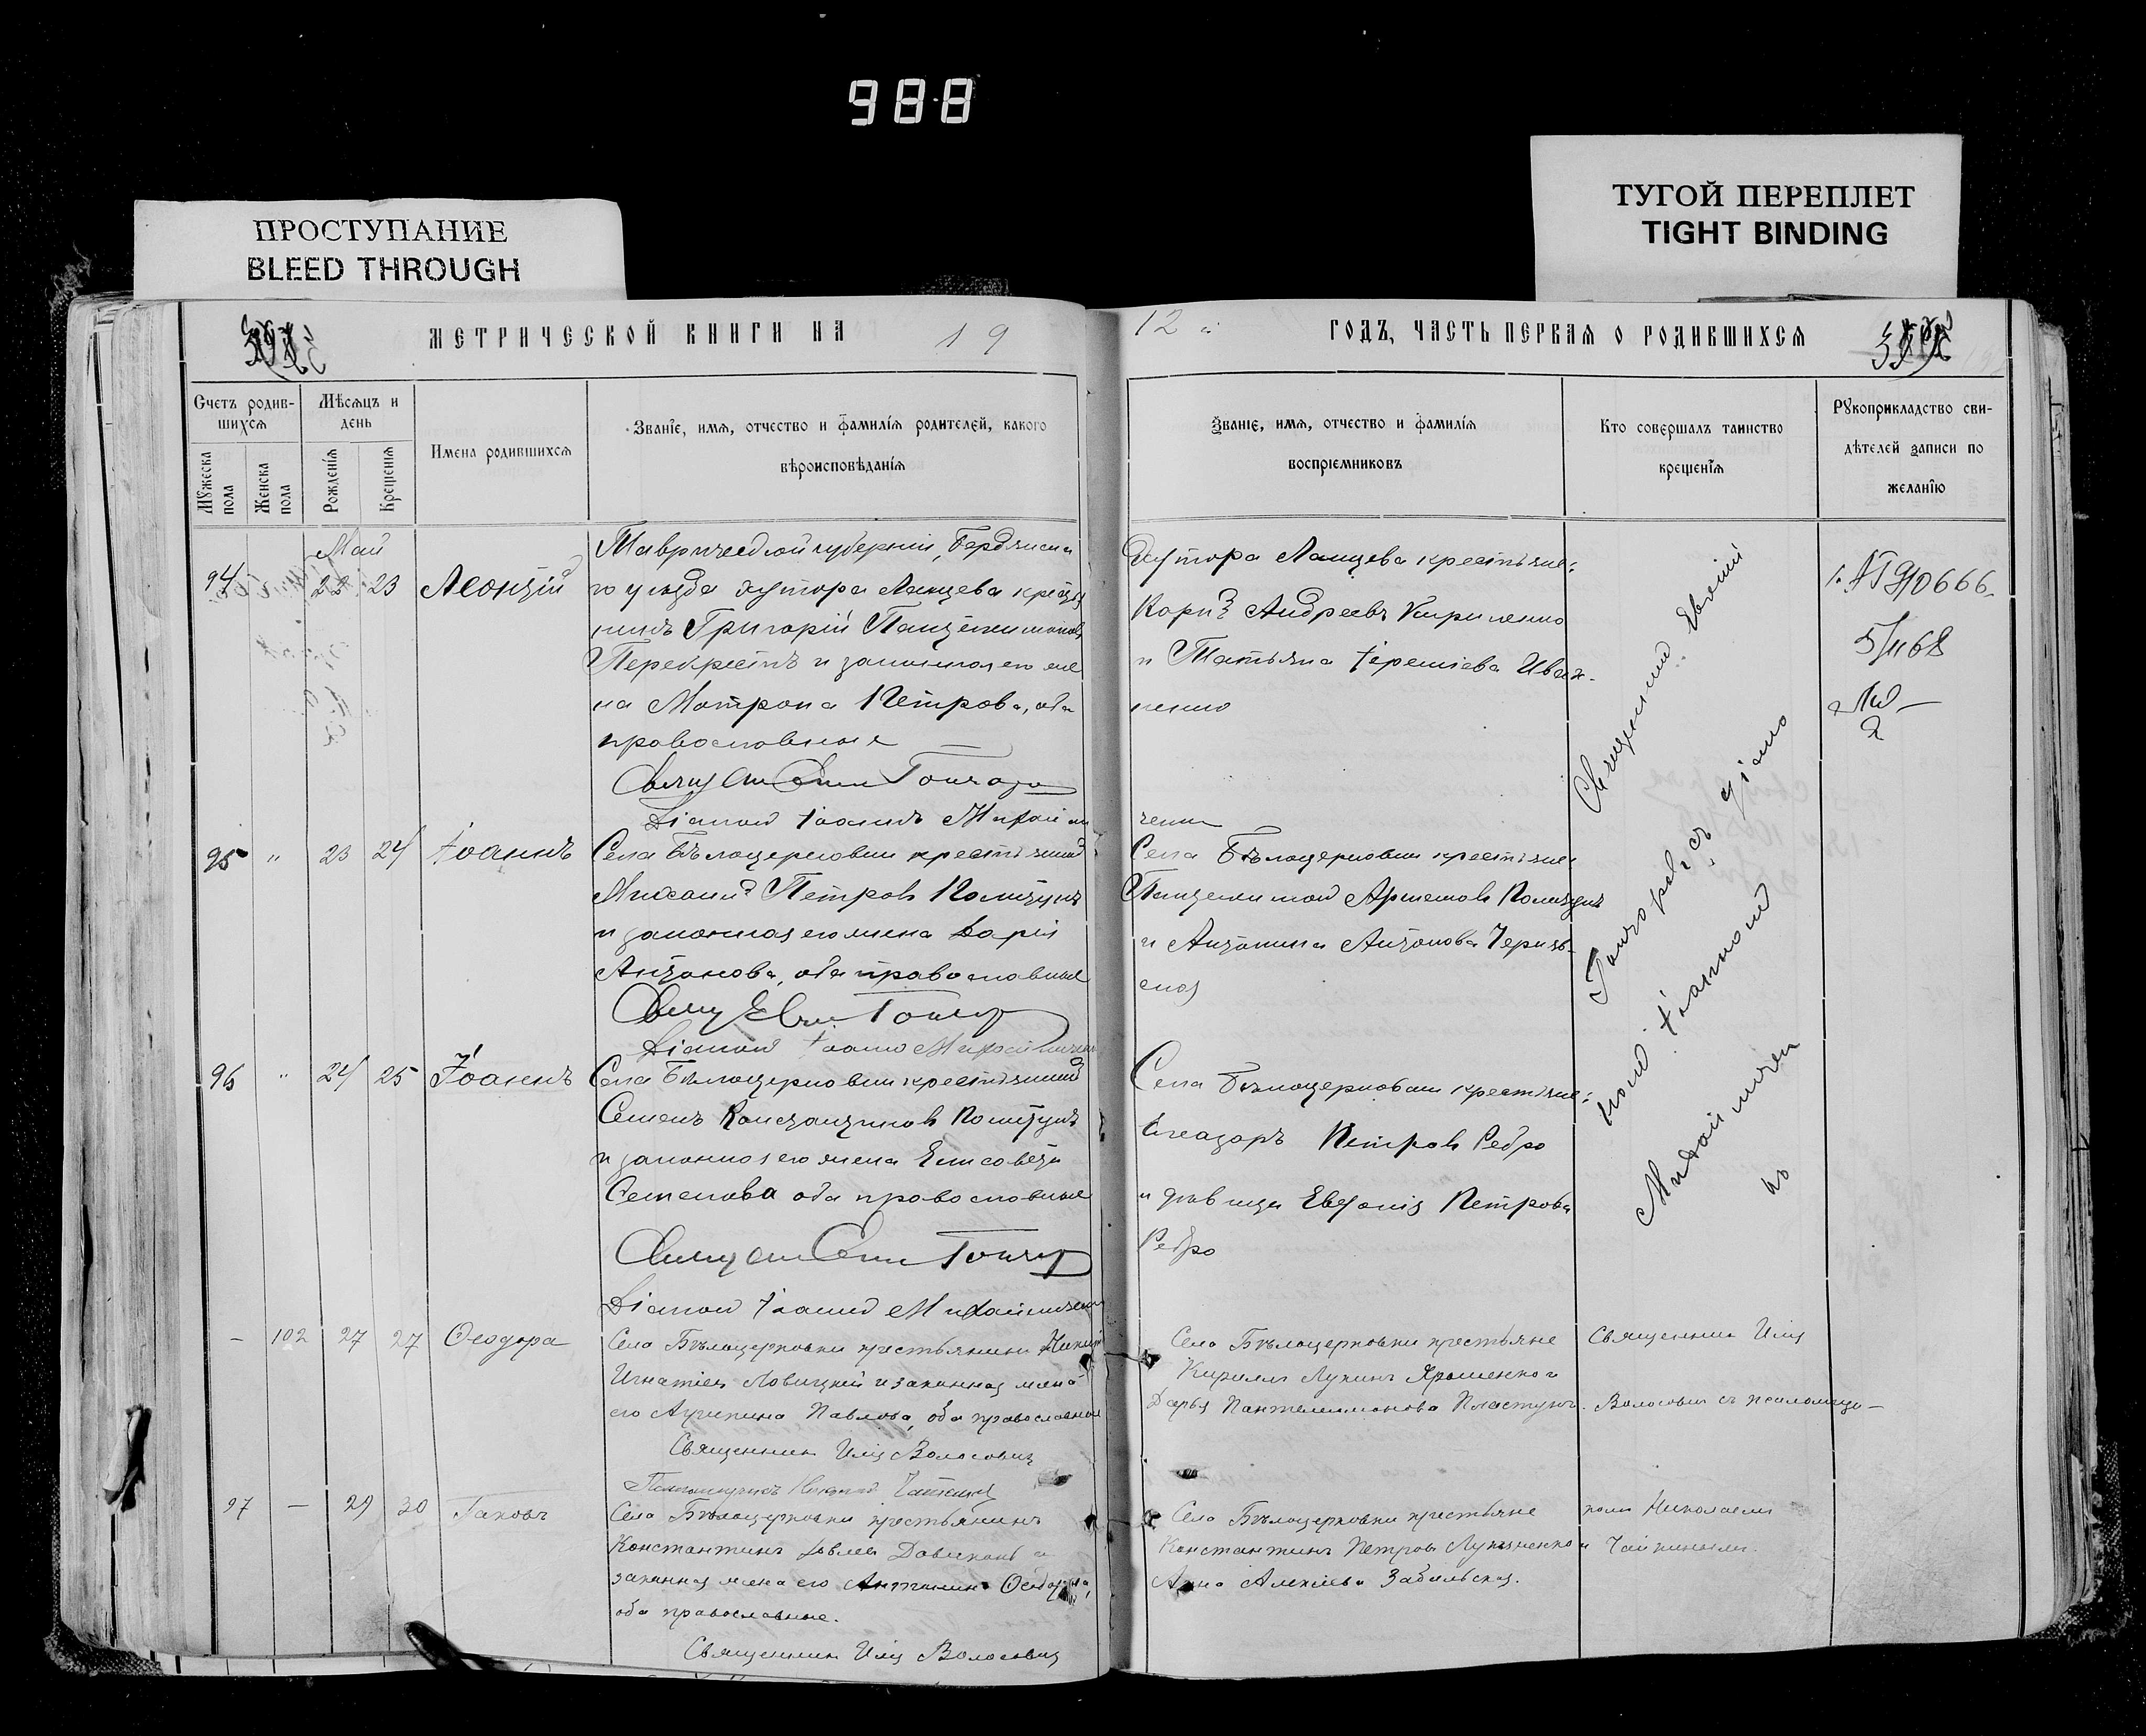 988
ПРОСТУПАНИЕ
BLEED THROUGH
ТУГОЙ ПЕРЕПЛЕТ
TIGHT BINDING
МЕТРИЧЕСКОЙ КНИГИ НА 19
12 й ГОДЪ, ЧАСТЬ ПЕРВАЯ О РОДИВШИХСЯ
Счетъ родив-
шихся
Мужеска
пола
Женска
пола
Мѣсяцъ и
день
Рожденія
Крещенія
Имена родившихся
Званіе, имя, отчество и фамилія родителей, какого
вѣроисповѣданія
Званіе, имя, отчество и фамилія
воспріемниковъ
Кто совершалъ таинство
крещенія
Рукоприкладство сви-
дѣтелей записи по
желанію
Май
94 22 23 Леонтій
Таврической губерніи, Бердянска
го уѣзда хутора Ланцева крестья
нинъ Григорій Пантелеимоновъ
Перекрестъ и законная его же
на Матрона Петрова, оба
православныя
Хутора Ланцева крестьяне:
Карпъ Андреевъ Кириленко
и Татьяна Іереміева Иван-
ченко
Священникъ Евѳимій
Гончаровъ съ діако
ном Іоанном
Михайличен
ко
5/II 68
95 " 23 24 Іоаннъ
Села Бѣлоцерковки крестьянинъ
Михаилъ Петровъ Полтунъ
и законная его жена Дарія
Антонова, оба православныя
Діаконъ Іоаннъ Михайличенко
Села Бѣлоцерковки крестьяне:
Пантелеимон Артемовъ
и Антонина Антонова
96 " 24 25 Іоаннъ
Села Бѣлоцерковки крестьянинъ
Семенъ Константиновъ
и законная его жена Елисавета
Семенова оба православныя
Діаконъ Іоаннъ Михайличенко
Села Бѣлоцерковки крестьяне:
Елеазаръ Петровъ Ребро
и дѣвица Евгенія Петрова
Ребро
— 102 27 27 Ѳеодора
Села Бѣлоцерковки крестьянинъ
Игнатіевъ Ловицкій и законная жена
его Акилина Павлова, оба православные
Священникъ Илія Волосовичъ
Села Бѣлоцерковки крестьяне
Кириллъ Лукинъ Ярошенко и
Дарья Пантелеимонова Пластунъ.
Священникъ Илія
Волосовичъ съ псаломщи—
комъ Николаемъ
Чайкинымъ.
97 — 29 30 Іаковъ
Села Бѣлоцерковки крестьянинъ
Константинъ Іовлевъ и
законная жена его Ѳеодорова,
оба православные.
Священникъ Илія Волосовичъ
Села Бѣлоцерковки крестьяне
Константинъ Петровъ Лукьяненко и
Анна Алексіева Забѣльская.